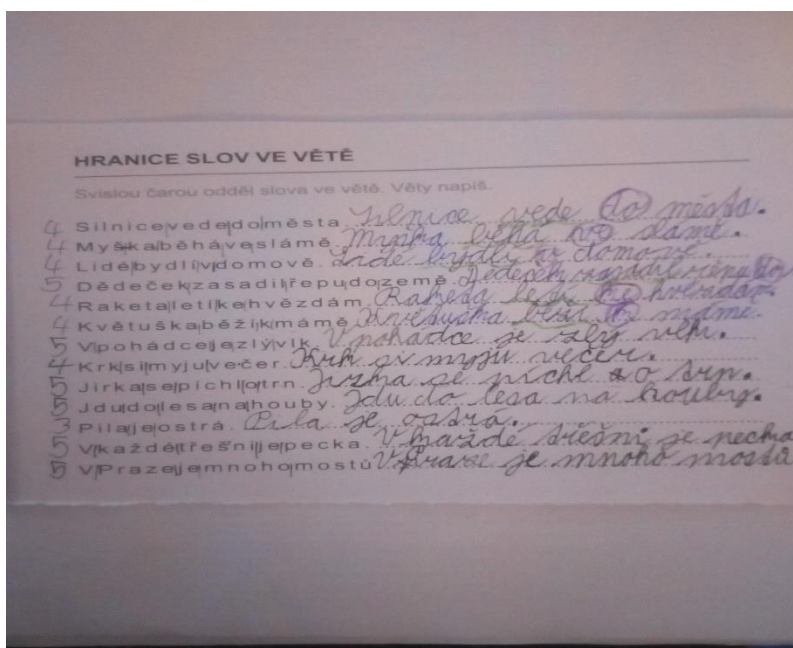 HRANICE SLOV VE VĚTĚ
Svislou čarou odděl slova ve větě. Věty napiš.
4 Silnice|vede|do|města. Silnice vede do města.
4 Myška|běhá|ve|slámě. Myška běhá ve slámě.
4 Lidé|bydlí|v|domově. Lidé bydlí v domově.
5 Dědeček|zasadil|řepu|do|země. Dědeček zasadil řepu do
4 Raketa|letí|ke|hvězdám. Raketa letí ke hvězdám.
4 Květuška|běží|k|mámě. Květuška běží k mámě.
5 V|pohádce|je|zlý|vlk. V pohádce je zlý vlk.
4 Krk|si|myju|večer. Krk si myju večer.
5 Jirka|se|píchl|o|trn. Jirka se píchl o trn.
5 Jdu|do|lesa|na|houby. Jdu do lesa na houby.
3 Pila|je|ostrá. Pila je ostrá.
5 V|každé|třešni|je|pecka. V každé třešni je pecka
5 V|Praze|je|mnoho|mostů V Praze je mnoho mostů